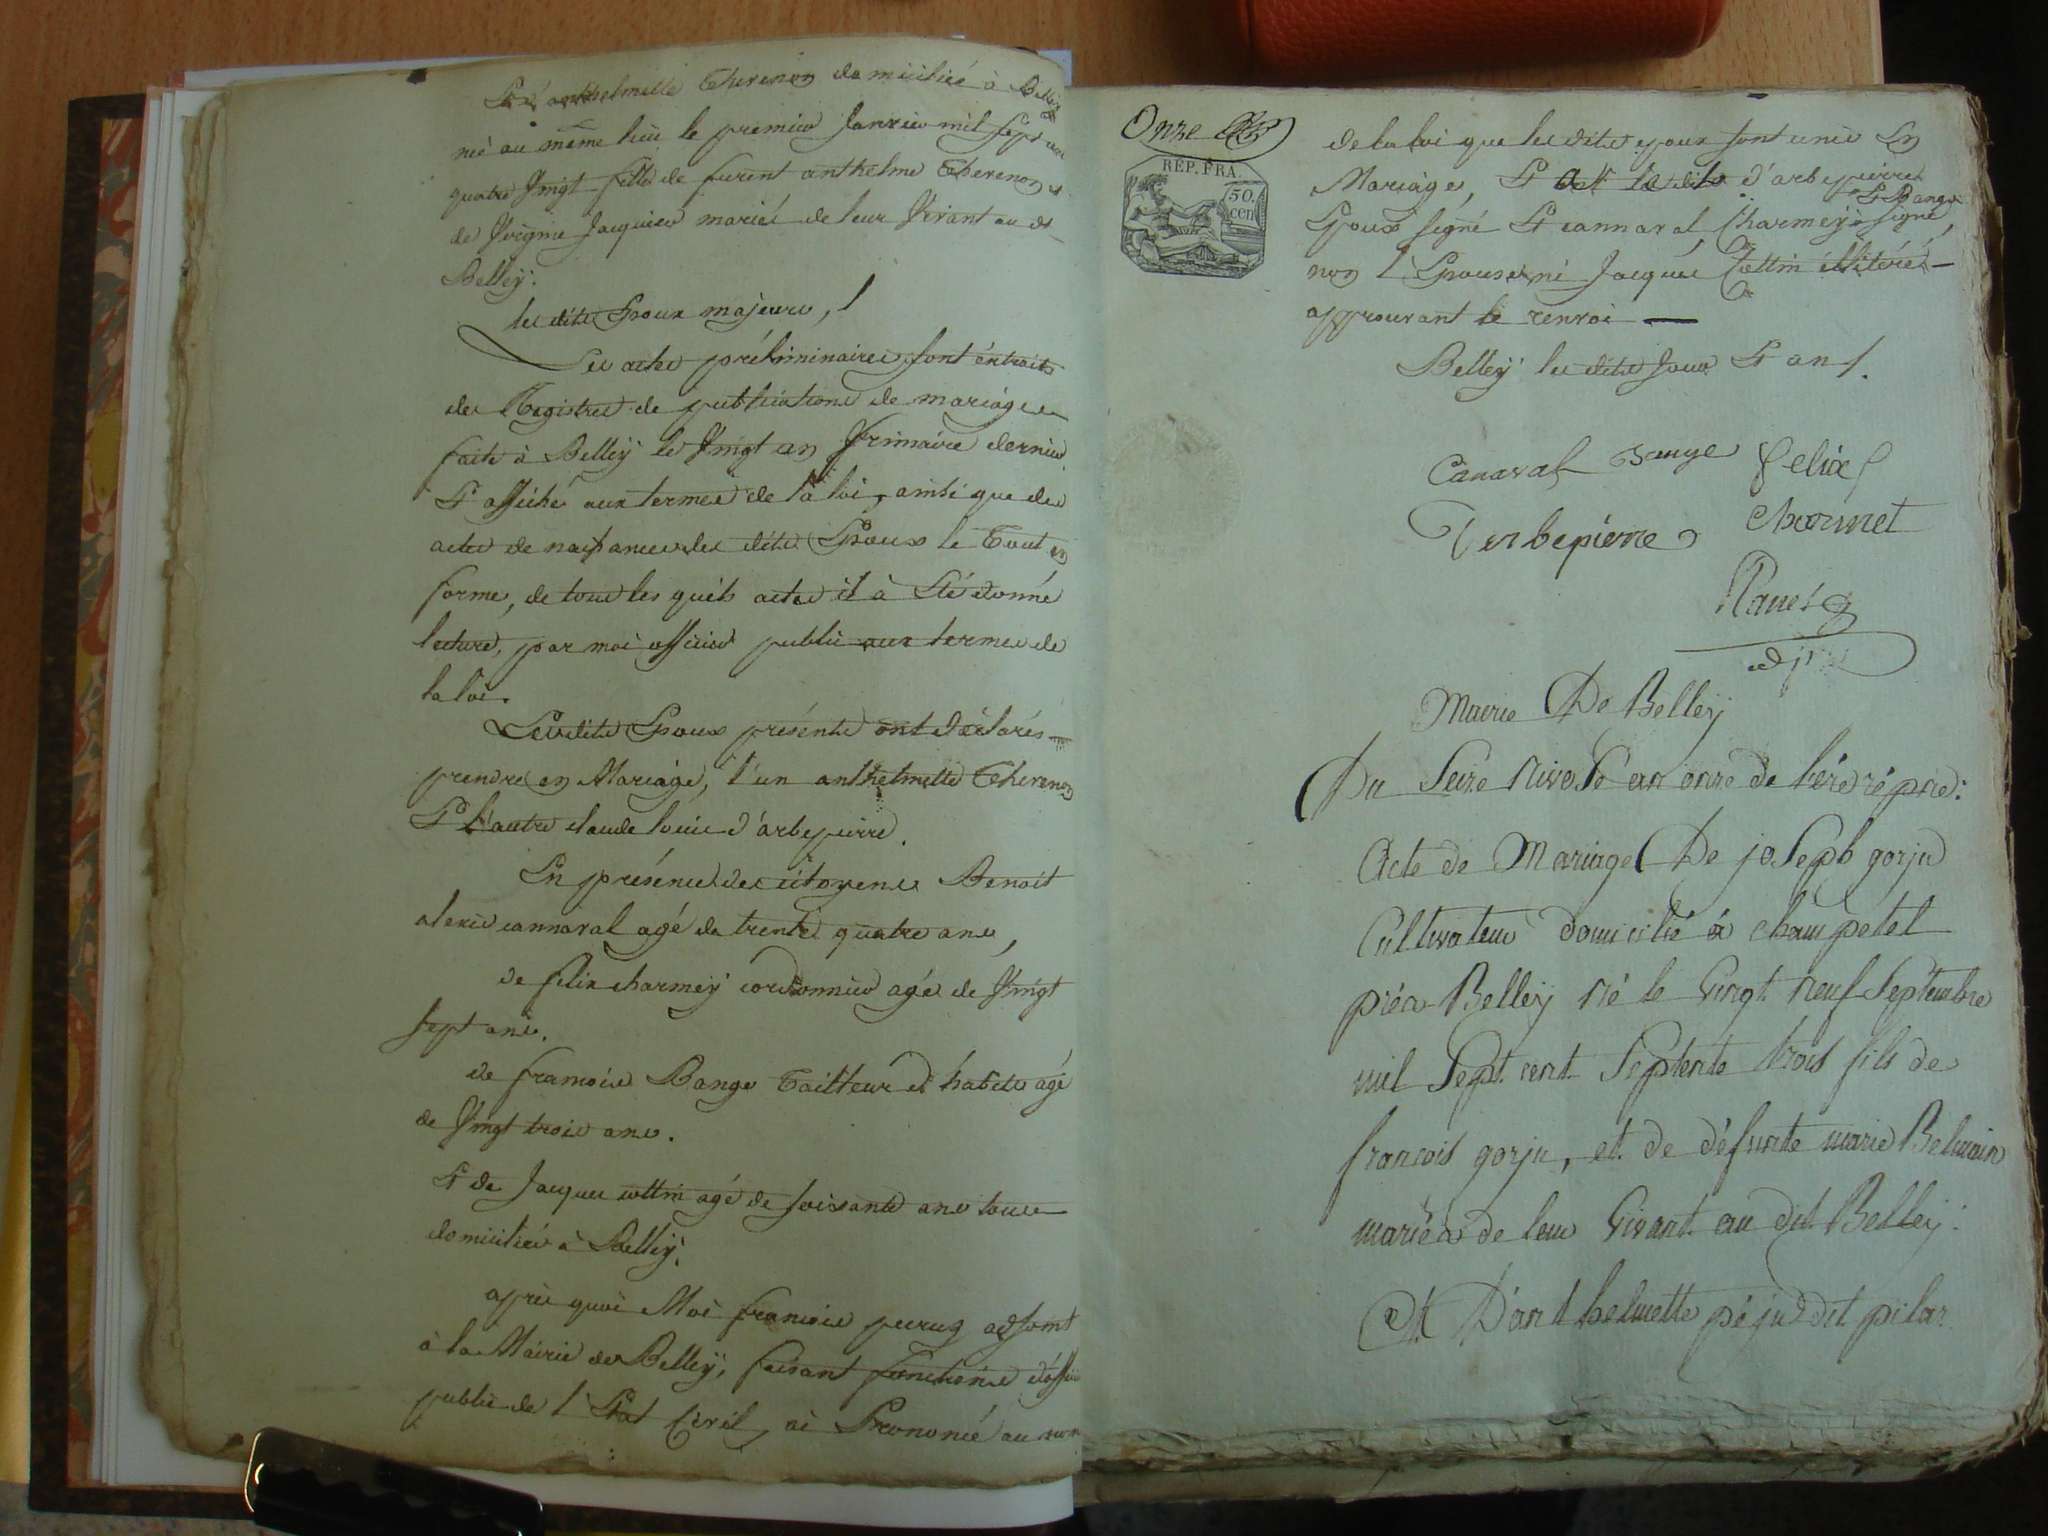 Et d'anthelmette Therenon domiciliée à Belley
née au même lieu le premier Janvier mil sept cent
quatre Vingt fille de furent anthelme Therenon et
de Jacquier mariés de leur Vivant au dt
Belley.
les dits Epoux majeurs,
Les actes préliminaires sont éxtraits
des Registres de publications de mariages
faits à Belley le Vingt un frimaire dernier
Et affiché aux termes de la loi, ainsi que des
actes de naissances des dits Epoux le tout en
forme, de tous les quels actes il à Eté donné
lecture, par moi officier public aux termes de
la loi.
Les dits Epoux présents ont déclarés
prendre en Mariage, l'un anthelmette Therenon
Et l'autre claude louis d'arbepierre.
En présence des citoyens Benoit
alexis cannaval agé de trente quatre ans,
de felix charmey cordonnier agé de Vingt
sept ans.
de francois Bange Tailleur d'habits agé
de Vingt trois ans.
Et de Jacques cottin agé de soissante ans tous
domiciliés à Belley.
après quoi Moi francois adjoint
à la Mairie de Belley, faisant fonctions d'officier
public de l'Etat Civil, ai Prononcé au nom
Onze
RÉP. FRA.
50.
cen
de la loi que les dits epoux sont unis En
Mariage, Et d'arbepierre
Et Bange
Epoux signé Et cannaval, Charmey signé,
non l'Epouse ni Jacques Cottin illiteré
approuvant le renvoi
Belley les dits Jour Et an.
Canaval Bange felix
Derbepierre Charmet
adjt
Mairie De Belley
Du Seize nivose an onze de l'ère répne:
Acte de Mariage De joseph gorju
Cultivateur domicilié à champetel
près Belley né le Vingt neuf Septembre
mil Sept cent Septente trois fils de
francois gorju, et de défunte marie Belmain
mariés de leur Vivant au dit Belley.
Et D'anthelmette péju dit pilar